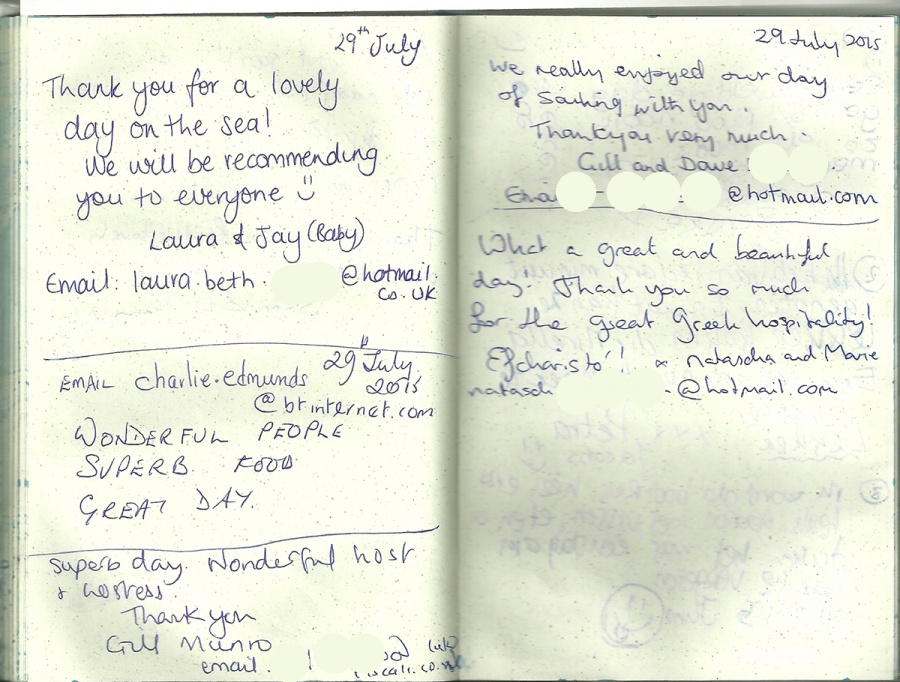 29th July
Thank you for a lovely
day on the sea!
We will be recommending
you to everyone
Laura & Jay (Baby)
Email: laura.beth.
@hotmail.
co.uk
29th July
2015
EMAIL charlie.edmunds
@btinternet.com
WONDERFUL PEOPLE
SUPERB FOOD
GREAT DAY.
Superb day. Wonderful host
& hostess.
Thank you
Gill Munro
email.
29 July 2015
We really enjoyed our day
of sailing with you.
Thankyou very much.
Gill and Dave
Email
@hotmail.com
What a great and beautiful
day. Thank you so much
for the great Greek hospitality!
Efcharistó! Natascha and Marie
natasch @hotmail.com